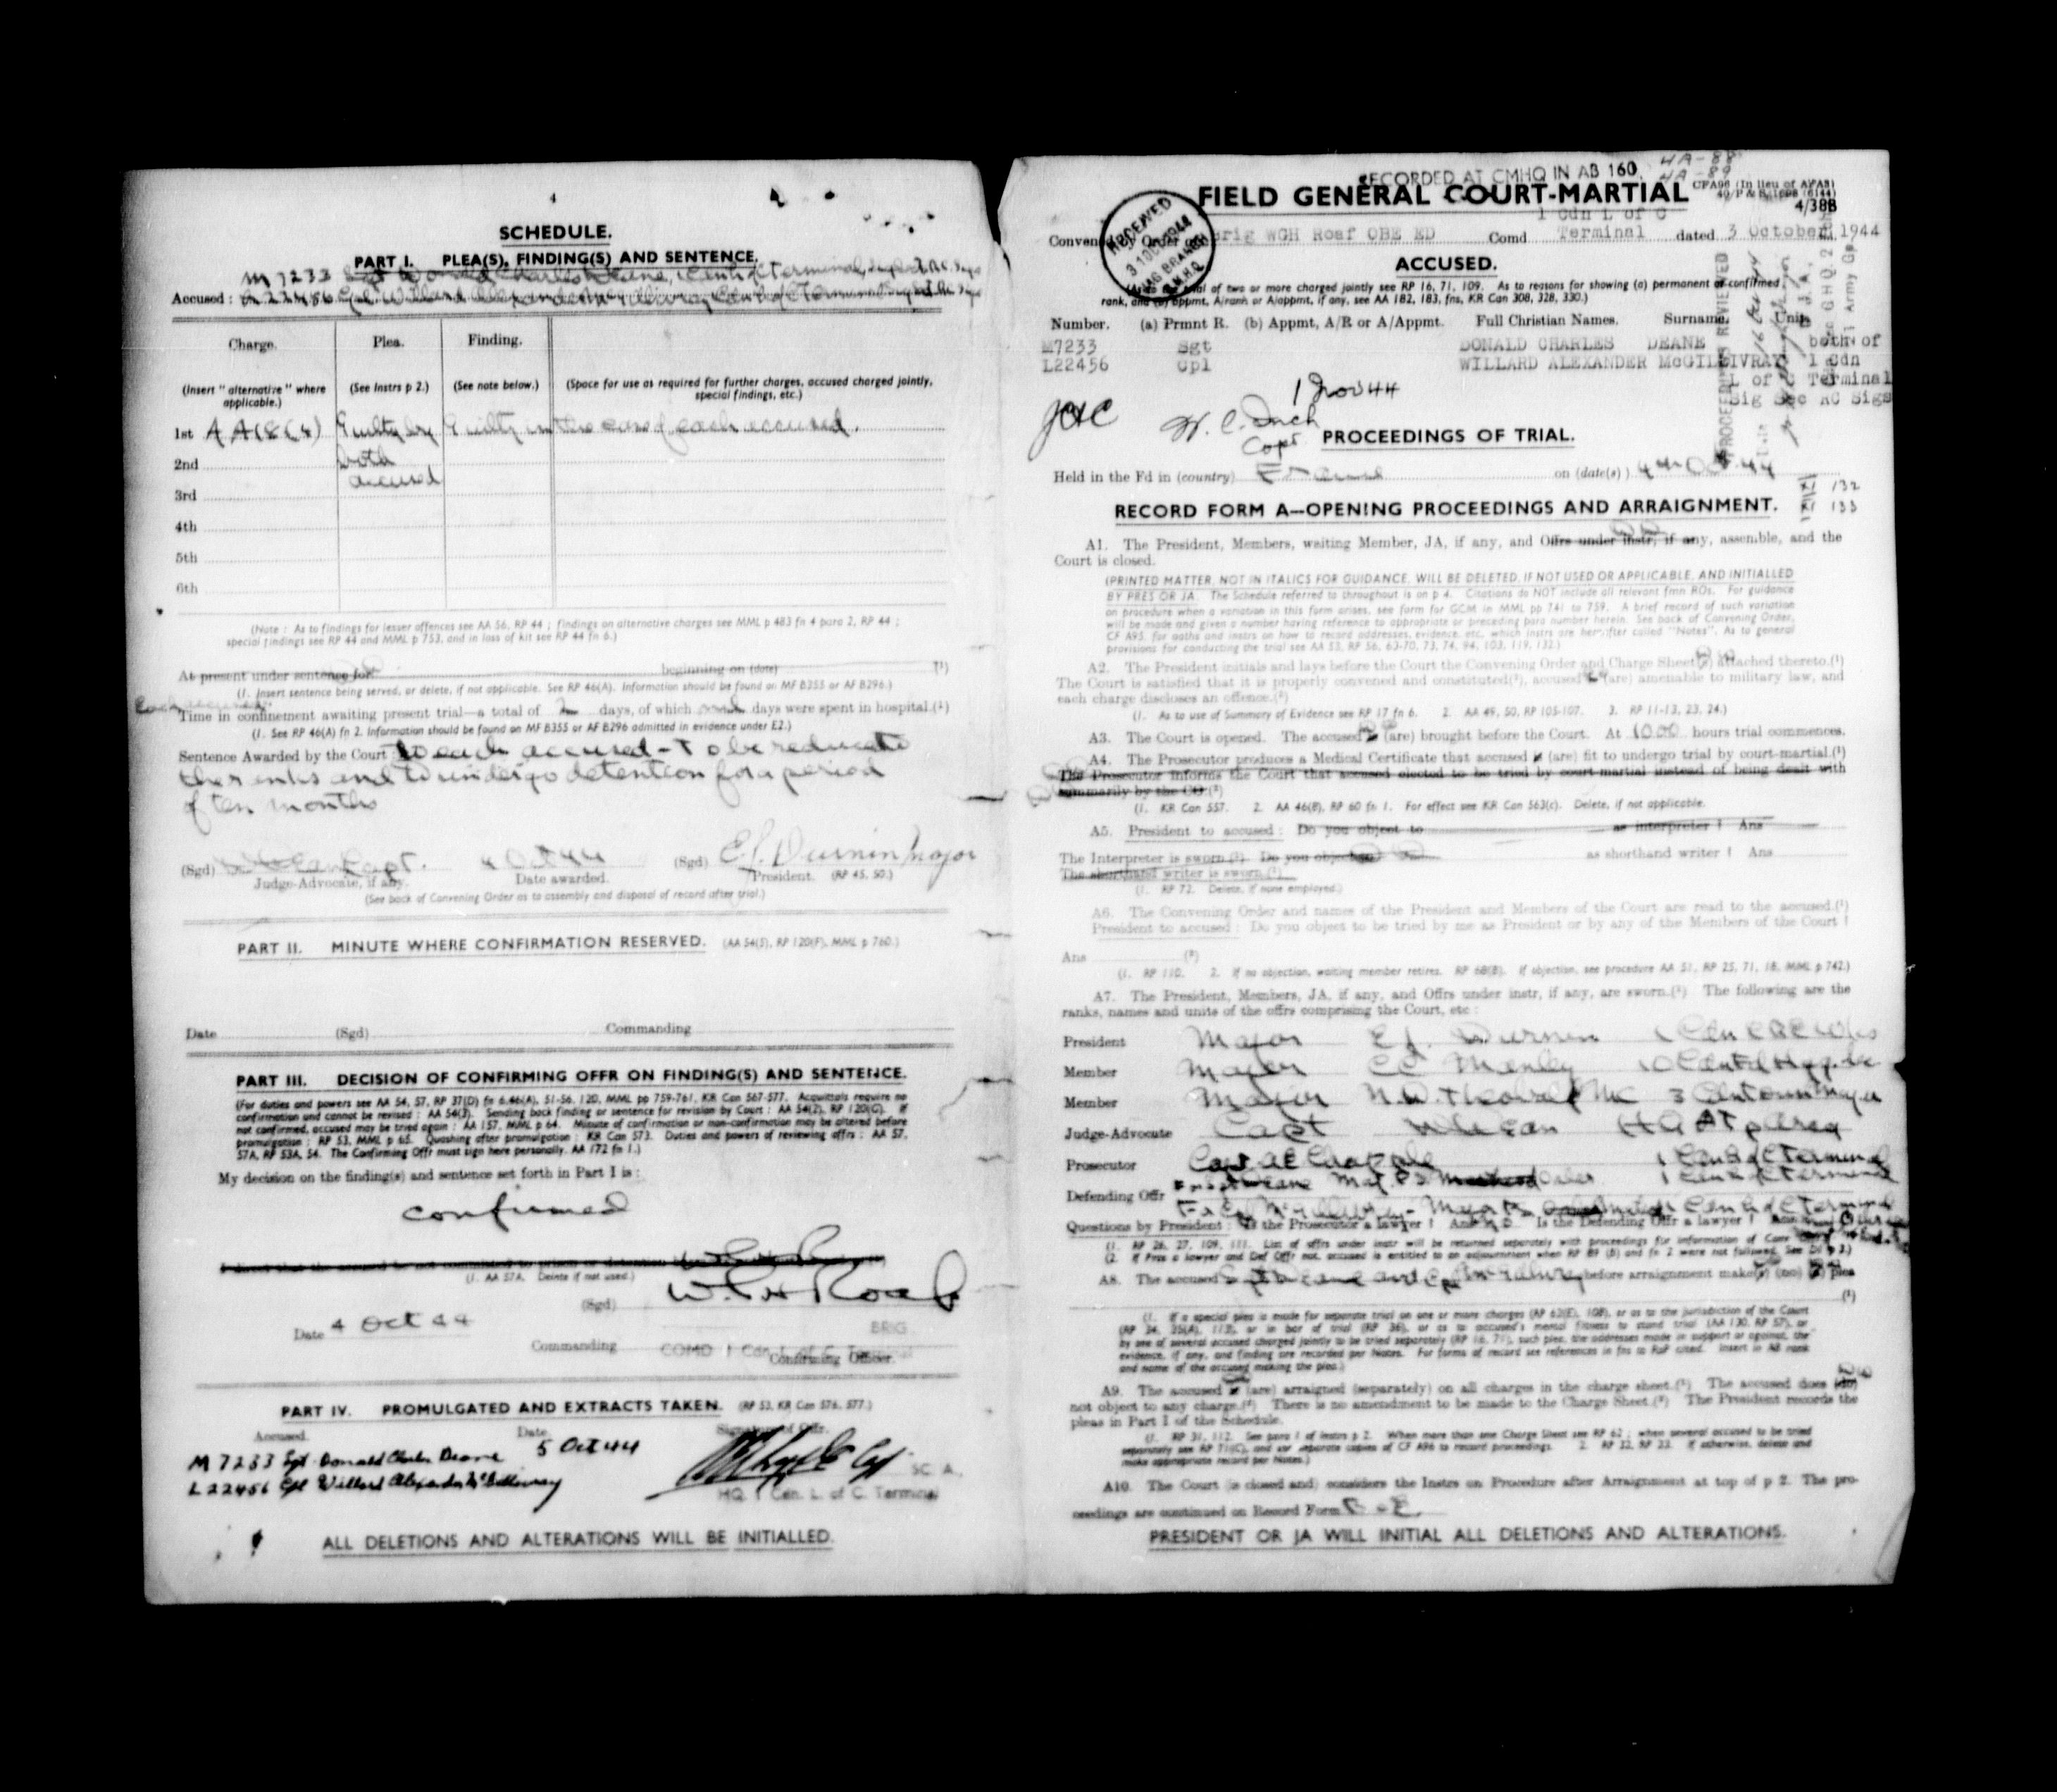 4
SCHEDULE.
PART I. PLEA(S), FINDING(S) AND SENTENCE.
M 7233 Sgt Donald Charles Deane, 1 Cdn L of C Terminal, Sigs R.C. Sigs
Accused : L 22456 Cpl. Willard Alexander McGillivray
Charge. Plea. Finding.
(Insert "alternative" where applicable.) (See Instrs p 2.) (See note below.) (Space for use as required for further charges, accused charged jointly, special findings, etc.)
1st AA 18(4) Guilty by Guilty in the case of each accused.
2nd both
accused
3rd
4th
5th
6th
(Note : As to findings for lesser offences see AA 56, RP 44 ; findings on alternative charges see MML p 483 fn 4 para 2, RP 44 ;
special findings see RP 44 and MML p 753, and in loss of kit see RP 44 fn 6.)
At present under sentence for beginning on (date) (¹)
(1. Insert sentence being served, or delete, if not applicable. See RP 46(A). Information should be found on MF B355 or AF B296.)
Each accused
Time in confinement awaiting present trial—a total of 2 days, of which days were spent in hospital.(¹)
(1. See RP 46(A) fn 2. Information should be found on MF B355 or AF B296 admitted in evidence under E2.)
Sentence Awarded by the Court to each accused - to be reduced to
the ranks and to undergo detention for a period
of ten months
(Sgd) Capt. 4 Oct 44 (Sgd) E.J. Durnin Major
Judge-Advocate, if any. Date awarded. President. (RP 45, 50.)
(See back of Convening Order as to assembly and disposal of record after trial.)
PART II. MINUTE WHERE CONFIRMATION RESERVED. (AA 54(5), RP 120(F), MML p 760.)
Date (Sgd) Commanding
PART III. DECISION OF CONFIRMING OFFR ON FINDING(S) AND SENTENCE.
(For duties and powers see AA 54, 57, RP 37(D) fn 6,46(A), 51-56, 120, MML pp 759-761, KR Can 567-577. Acquittals require no
confirmation and cannot be revised : AA 54(3). Sending back finding or sentence for revision by Court : AA 54(2), RP 120(G). If
not confirmed, accused may be tried again : AA 157, MML p 64. Minute of confirmation or non-confirmation may be altered before
promulgation : RP 53, MML p 65. Quashing after promulgation : KR Can 573. Duties and powers of reviewing offrs : AA 57,
57A, RP 53A, 54. The Confirming Offr must sign here personally. AA 172 fn 1.)
My decision on the finding(s) and sentence set forth in Part I is :
confirmed
I direct that the accused be not committed to prison or detention
(1. AA 57A. Delete if not used.)
(Sgd) W.G.H. Roaf
Date 4 Oct 44 BRIG
Commanding COMD 1 Cdn L of C Terminal
Confirming Officer.
PART IV. PROMULGATED AND EXTRACTS TAKEN. (RP 53, KR Can 576, 577.)
Accused. Date. Signature of Offr.
M 7233 Sgt Donald Charles Deane 5 Oct 44
L 22456 Cpl Willard Alexander McGillivray SC. A.
HQ. 1 Cdn. L. of C. Terminal
ALL DELETIONS AND ALTERATIONS WILL BE INITIALLED.
RECORDED AT CMHQ IN AB 160. 4A-88
4A-89
FIELD GENERAL COURT-MARTIAL CFA96 (In lieu of AFA3)
4/388
RECEIVED 31 OCT 1944 JAG BRANCH C.M.H.Q.
1 Cdn L of C
Convened by Order of Brig WGH Roaf OBE ED Comd Terminal dated 3 October 1944
ACCUSED.
(As to the trial of two or more charged jointly see RP 16, 71, 109. As to reasons for showing (a) permanent or confirmed
rank, and (b) appmt, A/rank or A/appmt, if any, see AA 182, 183, fns, KR Can 308, 328, 330.)
Number. (a) Prmnt R. (b) Appmt, A/R or A/Appmt. Full Christian Names. Surname. Unit.
M7233 Sgt DONALD CHARLES DEANE both of
L22456 Cpl WILLARD ALEXANDER McGILLIVRAY 1 Cdn
L of C Terminal
Sig Sec RC Sigs
PROCEEDINGS REVIEWED
1 Nov 44
W. C. Inch
Capt
PROCEEDINGS OF TRIAL.
Held in the Fd in (country) France on (date(s)) 4th Oct 44
132
133
RECORD FORM A—OPENING PROCEEDINGS AND ARRAIGNMENT.
A1. The President, Members, waiting Member, JA, if any, and Offrs under instr, if any, assemble, and the
Court is closed.
(PRINTED MATTER, NOT IN ITALICS FOR GUIDANCE, WILL BE DELETED, IF NOT USED OR APPLICABLE, AND INITIALLED
BY PRES OR JA. The Schedule referred to throughout is on p 4. Citations do NOT include all relevant fmn ROs. For guidance
on procedure when a variation in this form arises, see form for GCM in MML pp 741 to 759. A brief record of such variation
will be made and given a number having reference to appropriate or preceding para number herein. See back of Convening Order,
CF A95, for oaths and instrs on how to record addresses, evidence, etc, which instrs are hereafter called "Notes". As to general
provisions for conducting the trial see AA 53, RP 56, 63-70, 73, 74, 94, 103, 119, 132.)
A2. The President initials and lays before the Court the Convening Order and Charge Sheet(s) attached thereto.(¹)
The Court is satisfied that it is properly convened and constituted(²), accused (are) amenable to military law, and
each charge discloses an offence.(³)
(1. As to use of Summary of Evidence see RP 17 fn 6. 2. AA 49, 50, RP 105-107. 3. RP 11-13, 23, 24.)
A3. The Court is opened. The accused is (are) brought before the Court. At 1000 hours trial commences.
A4. The Prosecutor produces a Medical Certificate that accused is (are) fit to undergo trial by court-martial.(¹)
The Prosecutor informs the Court that accused elected to be tried by court-martial instead of being dealt with
summarily by the CO.(²)
(1. KR Can 557. 2. AA 46(8), RP 60 fn 1. For effect see KR Can 563(c). Delete, if not applicable.
A5. President to accused : Do you object to as interpreter ? Ans
The Interpreter is sworn.(¹) Do you object to as shorthand writer ? Ans
The shorthand writer is sworn.(¹)
(1. RP 72. Delete, if none employed.)
A6. The Convening Order and names of the President and Members of the Court are read to the accused.(¹)
President to accused : Do you object to be tried by me as President or by any of the Members of the Court ?
Ans (²)
(1. RP 110. 2. If no objection, waiting member retires. RP 68(B). If objection, see procedure AA 51, RP 25, 71, 18, MML p 742.)
A7. The President, Members, JA, if any, and Offrs under instr, if any, are sworn.(¹) The following are the
ranks, names and units of the offrs comprising the Court, etc :
President Major E.J. Durnin
Member Major CC Manley
Member Major 3
Judge-Advocate Capt HQ
Prosecutor Capt 1 Cdn L of C Terminal
Defending Offr Maj 1 Cdn L of C Terminal
McGillivray - Major 1 Cdn L of C Terminal
Questions by President : Is the Prosecutor a lawyer ? Ans No. Is the Defending Offr a lawyer ? Ans
(1. RP 26, 27, 109, 111. List of offrs under instr will be returned separately with proceedings for information of Conv
(2. If Pros a lawyer and Def Offr not, accused is entitled to an adjournment when RP 89 (B) and fn 2 were not followed. See D1 p 3.)
A8. The accused Sgt Deane and Cpl McGillivray before arraignment make(s) (no) plea
(¹)
(1. If a special plea is made for separate trial on one or more charges (RP 62(E), 108), or as to the jurisdiction of the Court
(RP 34, 35(A), 113), or in bar of trial (RP 36), or as to accused's mental fitness to stand trial (AA 130, RP 57), or
by one of several accused charged jointly to be tried separately (RP 16, 71), such plea, the addresses made in support or against, the
evidence, if any, and finding are recorded per Notes. For forms of record see references in fns to RsP cited. Insert in A8 rank
and name of the accused making the plea.)
A9. The accused is (are) arraigned (separately) on all charges in the charge sheet.(¹) The accused does (do)
not object to any charge.(²) There is no amendment to be made to the Charge Sheet.(²) The President records the
pleas in Part I of the Schedule.
(1. RP 31, 112. See para 1 of Instrs p 2. When more than one Charge Sheet see RP 62 ; when several accused to be tried
separately see RP 71(C), and use separate copies of CF A96 to record proceedings. 2. RP 32, RP 33. If otherwise, delete and
make appropriate record per Notes.)
A10. The Court (is closed and) considers the Instrs on Procedure after Arraignment at top of p 2. The pro-
ceedings are continued on Record Form
PRESIDENT OR JA WILL INITIAL ALL DELETIONS AND ALTERATIONS.